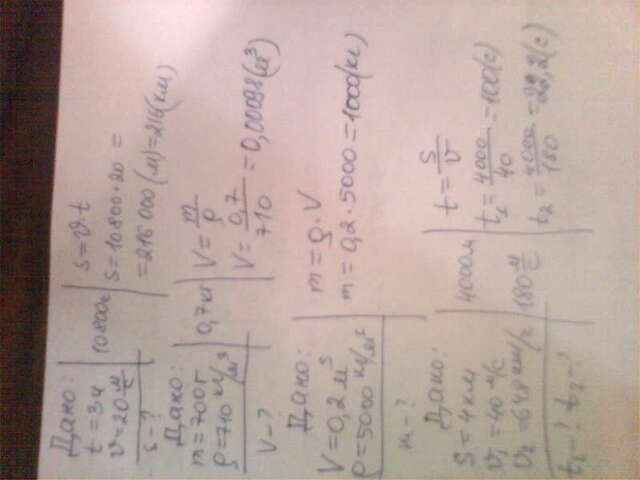 Дано:
t = 3ч
v = 20 м/с
s - ?
10800с
S = v·t
S = 10800·20 =
= 216000 (м) = 216 (км)
Дано:
m = 700 г
ρ = 710 кг/м³
V - ?
0,7 кг
V = m/ρ
V = 0,7/710 = 0,00098 (м³)
Дано:
V = 0,2 м³
ρ = 5000 кг/м³
m - ?
m = ρ·V
m = 0,2·5000 = 1000 (кг)
Дано:
S = 4 км
v₁ = 40 м/с
v₂ = 648 км/ч
t₁ - ? t₂ - ?
4000м
180 м/с
t = S/v
t₁ = 4000/40 = 100 (с)
t₂ = 4000/180 = 22,2 (с)